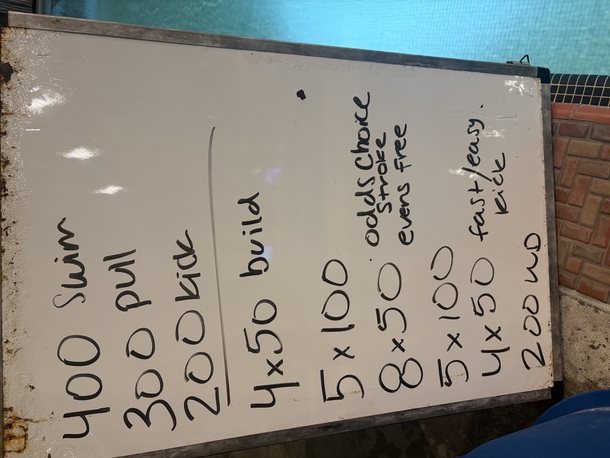 400 Swim
300 pull
200 kick
4x50 build
5 x 100
8 x 50 odds choice
stroke
evens free
5 x 100
4 x 50 fast/easy.
kick
200 WD